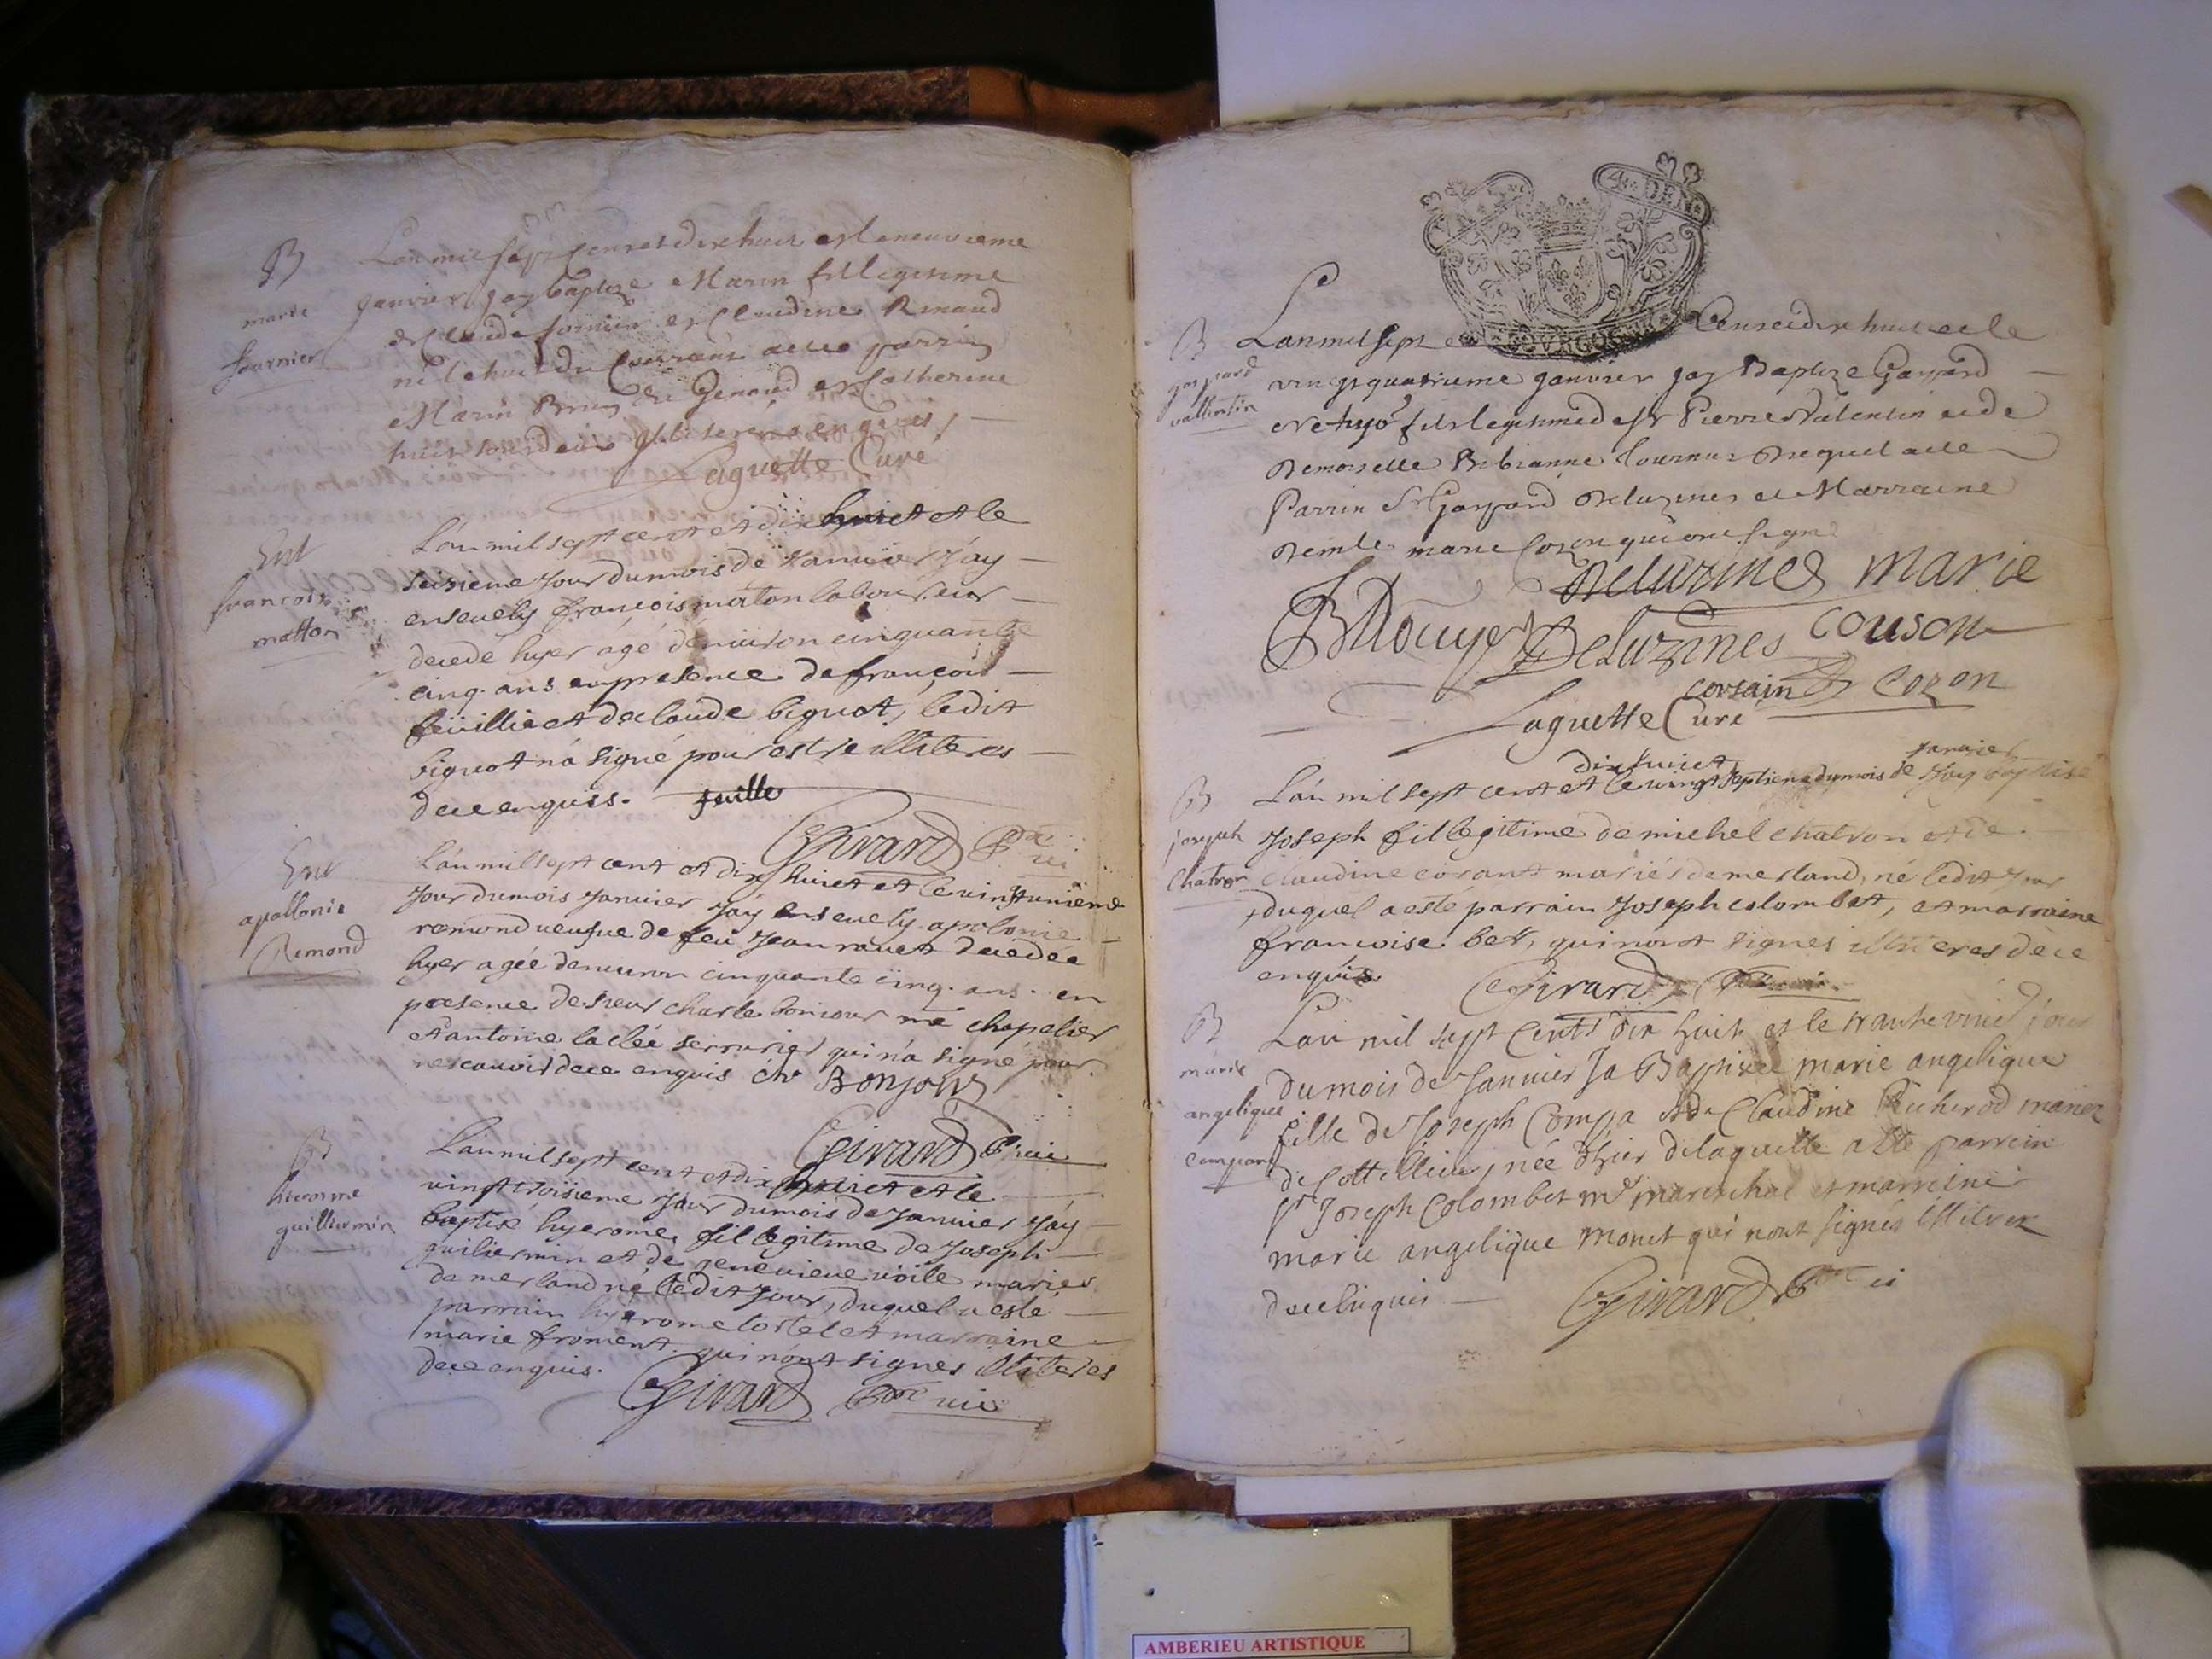 B
marie
fournier
Lan mil sept cens et dix huit et le neuvieme
janvier jay baptize Marin fils legitime
de Claude fornier et Claudine Renaud
né le huit du Courant a esté parrin
Marin Brun du Genoud et Catherine
illiterés enquis
Laguette Curé
Ent
francois
matton
Lán mil sept cent et dix huict et le
seizieme jour du mois de Janvier J'áy
enseuely françois máton laboureur
decedé hyer agé dénuiron cinquante
cinq. ans en presence de françois
feüillie et de claude biguot, ledit
biguot n'á signé pour estre illiteres
dece enquiss. fuille
Girard
Ent
apollonie
Remond
Lán mil sept cent et dix huict et le vintunieme
Jour du mois Janvier Jáy enseuely apolonie
remond ueufue de feu Jean rauet decedee
hyer agée denuiron cinquante cinq. ans. en
presence de sieur charle bonjour me chapelier
et antoine laclée serrurier qui n'a signé pour
ne scauoir dece enquis chr Bonjour
Girard Pbre vic
B
hierosme
guillermin
Lán mil sept cent et dix huict et le
vingt troisieme Jour du mois de Janvier Jáy
baptisé hyerome fil legitime de Joseph
guiliermin et de geneuieue uoile mariés
de merland né ledit Jour, duquel a esté
parrain hyerome lortel et marraine
marie froment. qui n'ónt signes illiteres
dece enquis.
Girard Pbre vic
4 DEN
BOURGOGNE
B
gaspard
vallentin
Lan mil sept Cens et dix huit et le
vingt quatrieme janvier jay Baptize Gaspard
fils legitime de sr Pierre Valentin et de
Demoiselle Bibianne Tournus Duquel a esté
Parrin Sr Gaspard Deluzines et Marraine
Demlle marie Cozon qui ont signé
Deluzines marie
BRouyer Deluzines couson
corsain Cozon
Laguette Curé
B
joseph
Chatron
dix huict
Lán mil sept cent et le vingt septieme du mois de janvier Jay baptisé
Joseph fil legitime de michel chatron et de
claudine corant mariés de merland, né ledit Jour
, duquel a esté parrain Joseph colombet, et marraine
francoise bett, qui nont signes illiteres dece
enquis
Girard
B
marie
angelique
Compan
Lan mil sept Cents dix huit et le trante vniē jour
du mois de Januier Ja Baptisée marie angelique
fille de Joseph Compa et de Claudine Richerod mariez
de Cottellieu, née d'hier de laquelle a été parrein
sr Joseph Colombet me marechal et marreine
marie angelique Monet qui nont signés illitrez
dece enquis
Girard Pbre vi
AMBERIEU ARTISTIQUE